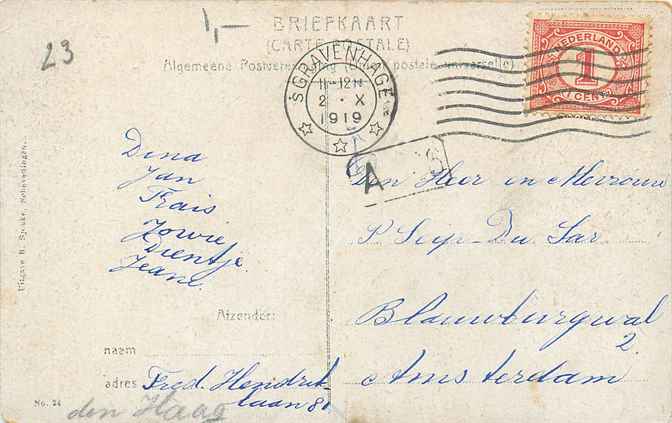 1,-
23
BRIEFKAART
(CARTE POSTALE)
Algemeene Postvereeniging (Union postale universelle)
'S GRAVENHAGE
11-12 N
2 · X
1919
NEDERLAND
1
1 CENT
A
Dina
Jan
Frais
Jowie
Dientje
Jeane.
Den Heer en Mevrouw
P Seip-Du Sar
Blauwburgwal
2
Amsterdam
Afzender:
naam
adres Fred. Hendrik
laan 81
den Haag
No. 24
Uitgave Scheveningen.